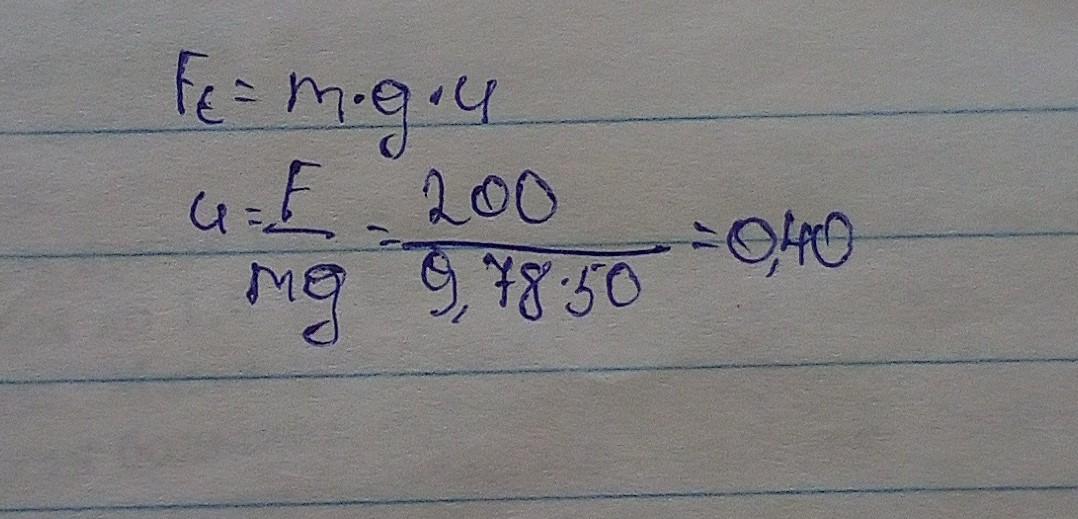 F_t = m·g·μ
μ = F/mg = 200/9,78·50 = 0,40